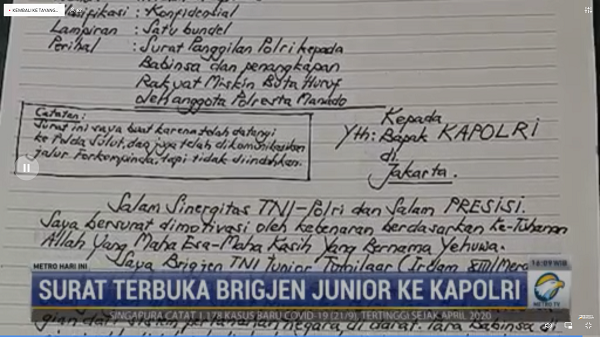 KEMBALI KE TAYANG...
Klasifikasi : Konfidential
Lampiran : Satu bundel
Perihal : Surat Panggilan Polri kepada
Babinsa dan penangkapan
Rakyat Miskin Buta Huruf
oleh anggota Polresta Manado
Catatan:
Surat ini saya buat karena telah datangi
ke Polda Sulut, dan juga telah dikomunikasikan
jalur Forkopimda, tapi tidak diindahkan.
Kepada
Yth: Bapak KAPOLRI
di
Jakarta.
Salam Sinergitas TNI-Polri dan Salam PRESISI.
Saya bersurat dimotivasi oleh kebenaran berdasarkan Ke-Tuhanan
Allah Yang Maha Esa-Maha Kasih Yang Bernama Yehuwa.
Saya Brigjen TNI Junior Tumilaar (Irdam XIII/Merd
METRO HARI INI
16:09 WIB
SURAT TERBUKA BRIGJEN JUNIOR KE KAPOLRI
METRO TV
SINGAPURA CATAT 1.178 KASUS BARU COVID-19 (21/9), TERTINGGI SEJAK APRIL 2020
gian dari sistem pertahanan negara di darat. Para Babinsa di